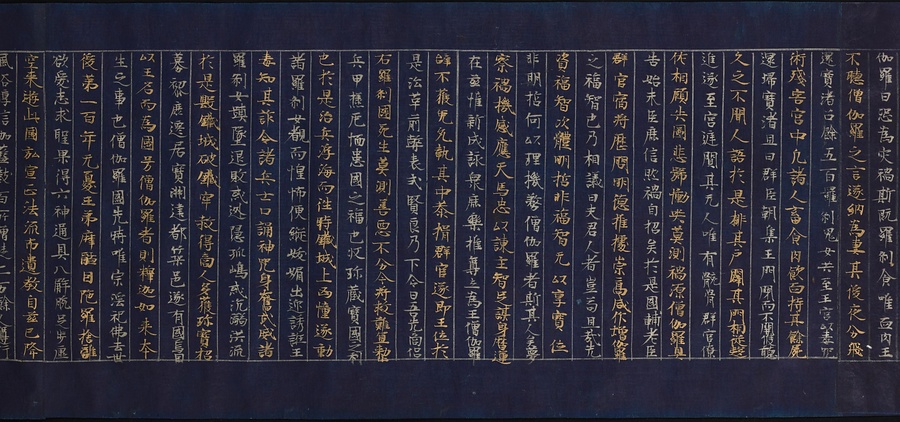 伽羅曰恐為灾禍斯既羅剎食唯血肉王
不聽僧伽羅之言遂納為妻其後夜分飛
還寶渚召餘五百羅剎鬼女共至王宮以毒呪
術殘害宮中凡諸人畜食肉飲血持其餘屍
還歸寶渚旦日群臣朝集王門閉而不開候聽
久之不聞人語於是排其戶闢其門相從趍
進遂至宮庭闃其无人唯有骸骨群官僚
佐相顧失圖悲號慟哭莫測禍源僧伽羅具
告始末臣庶信然禍自招矣於是國輔老臣
群官宿將歷問明德推據崇高咸仰僧伽羅
之福智也乃相議曰夫君人者豈苟且哉先
資福智次體明哲非福智无以享寶位
非明哲何以理機務僧伽羅者斯其人矣夢
察禍機感應天馬忠以諫主智足謀身曆運
在茲惟新成詠眾庶樂推尊立為王僧伽羅
辭不獲免允執其中恭揖群官遂即王位於
是㳂革前弊表式賢良乃下令曰吾先商侶
在羅剎國死生莫測善惡不分今將救難宜整
兵甲拯危恤患國之福也收珎藏寶國之利
也於是治兵浮海而往時鐵城上凶幢遂動
諸羅剎女覩而惶怖便縱妖媚出迎誘誑王
素知其詐令諸兵士口誦神呪身奮武威諸
羅剎女蹎墜退敗或逃隱孤嶋或沉溺洪流
於是毀鐵城破鐵牢救得商人多獲珠寶招
募初庶遷居寶洲建都築邑遂有國焉因
以王名而為國号僧伽羅者則釋迦如來本
生之事也僧伽羅國先時唯宗淫祀佛去世
後第一百年无憂王弟摩醯因陁羅捨離
欲愛志求聖果得六神通具八解脫足步虛
空來遊此國弘宣正法流布遺教自茲已降
風俗淳信伽藍數百所僧徒二万餘人遵行